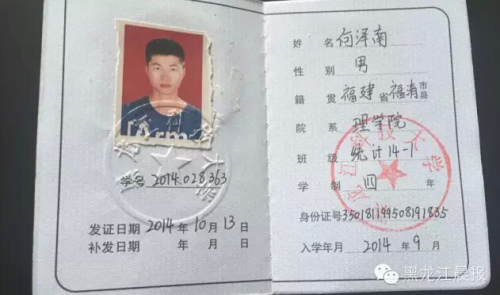 学号 2014.028363
发证日期 2014年10月13日
补发日期 年 月 日
姓名 何泽南
性别 男
籍贯 福建省福清市县
院系 理学院
班级 统计14-1
学制 四年
身份证号350181199508191835
入学年月 2014年9月
黑龙江晨报